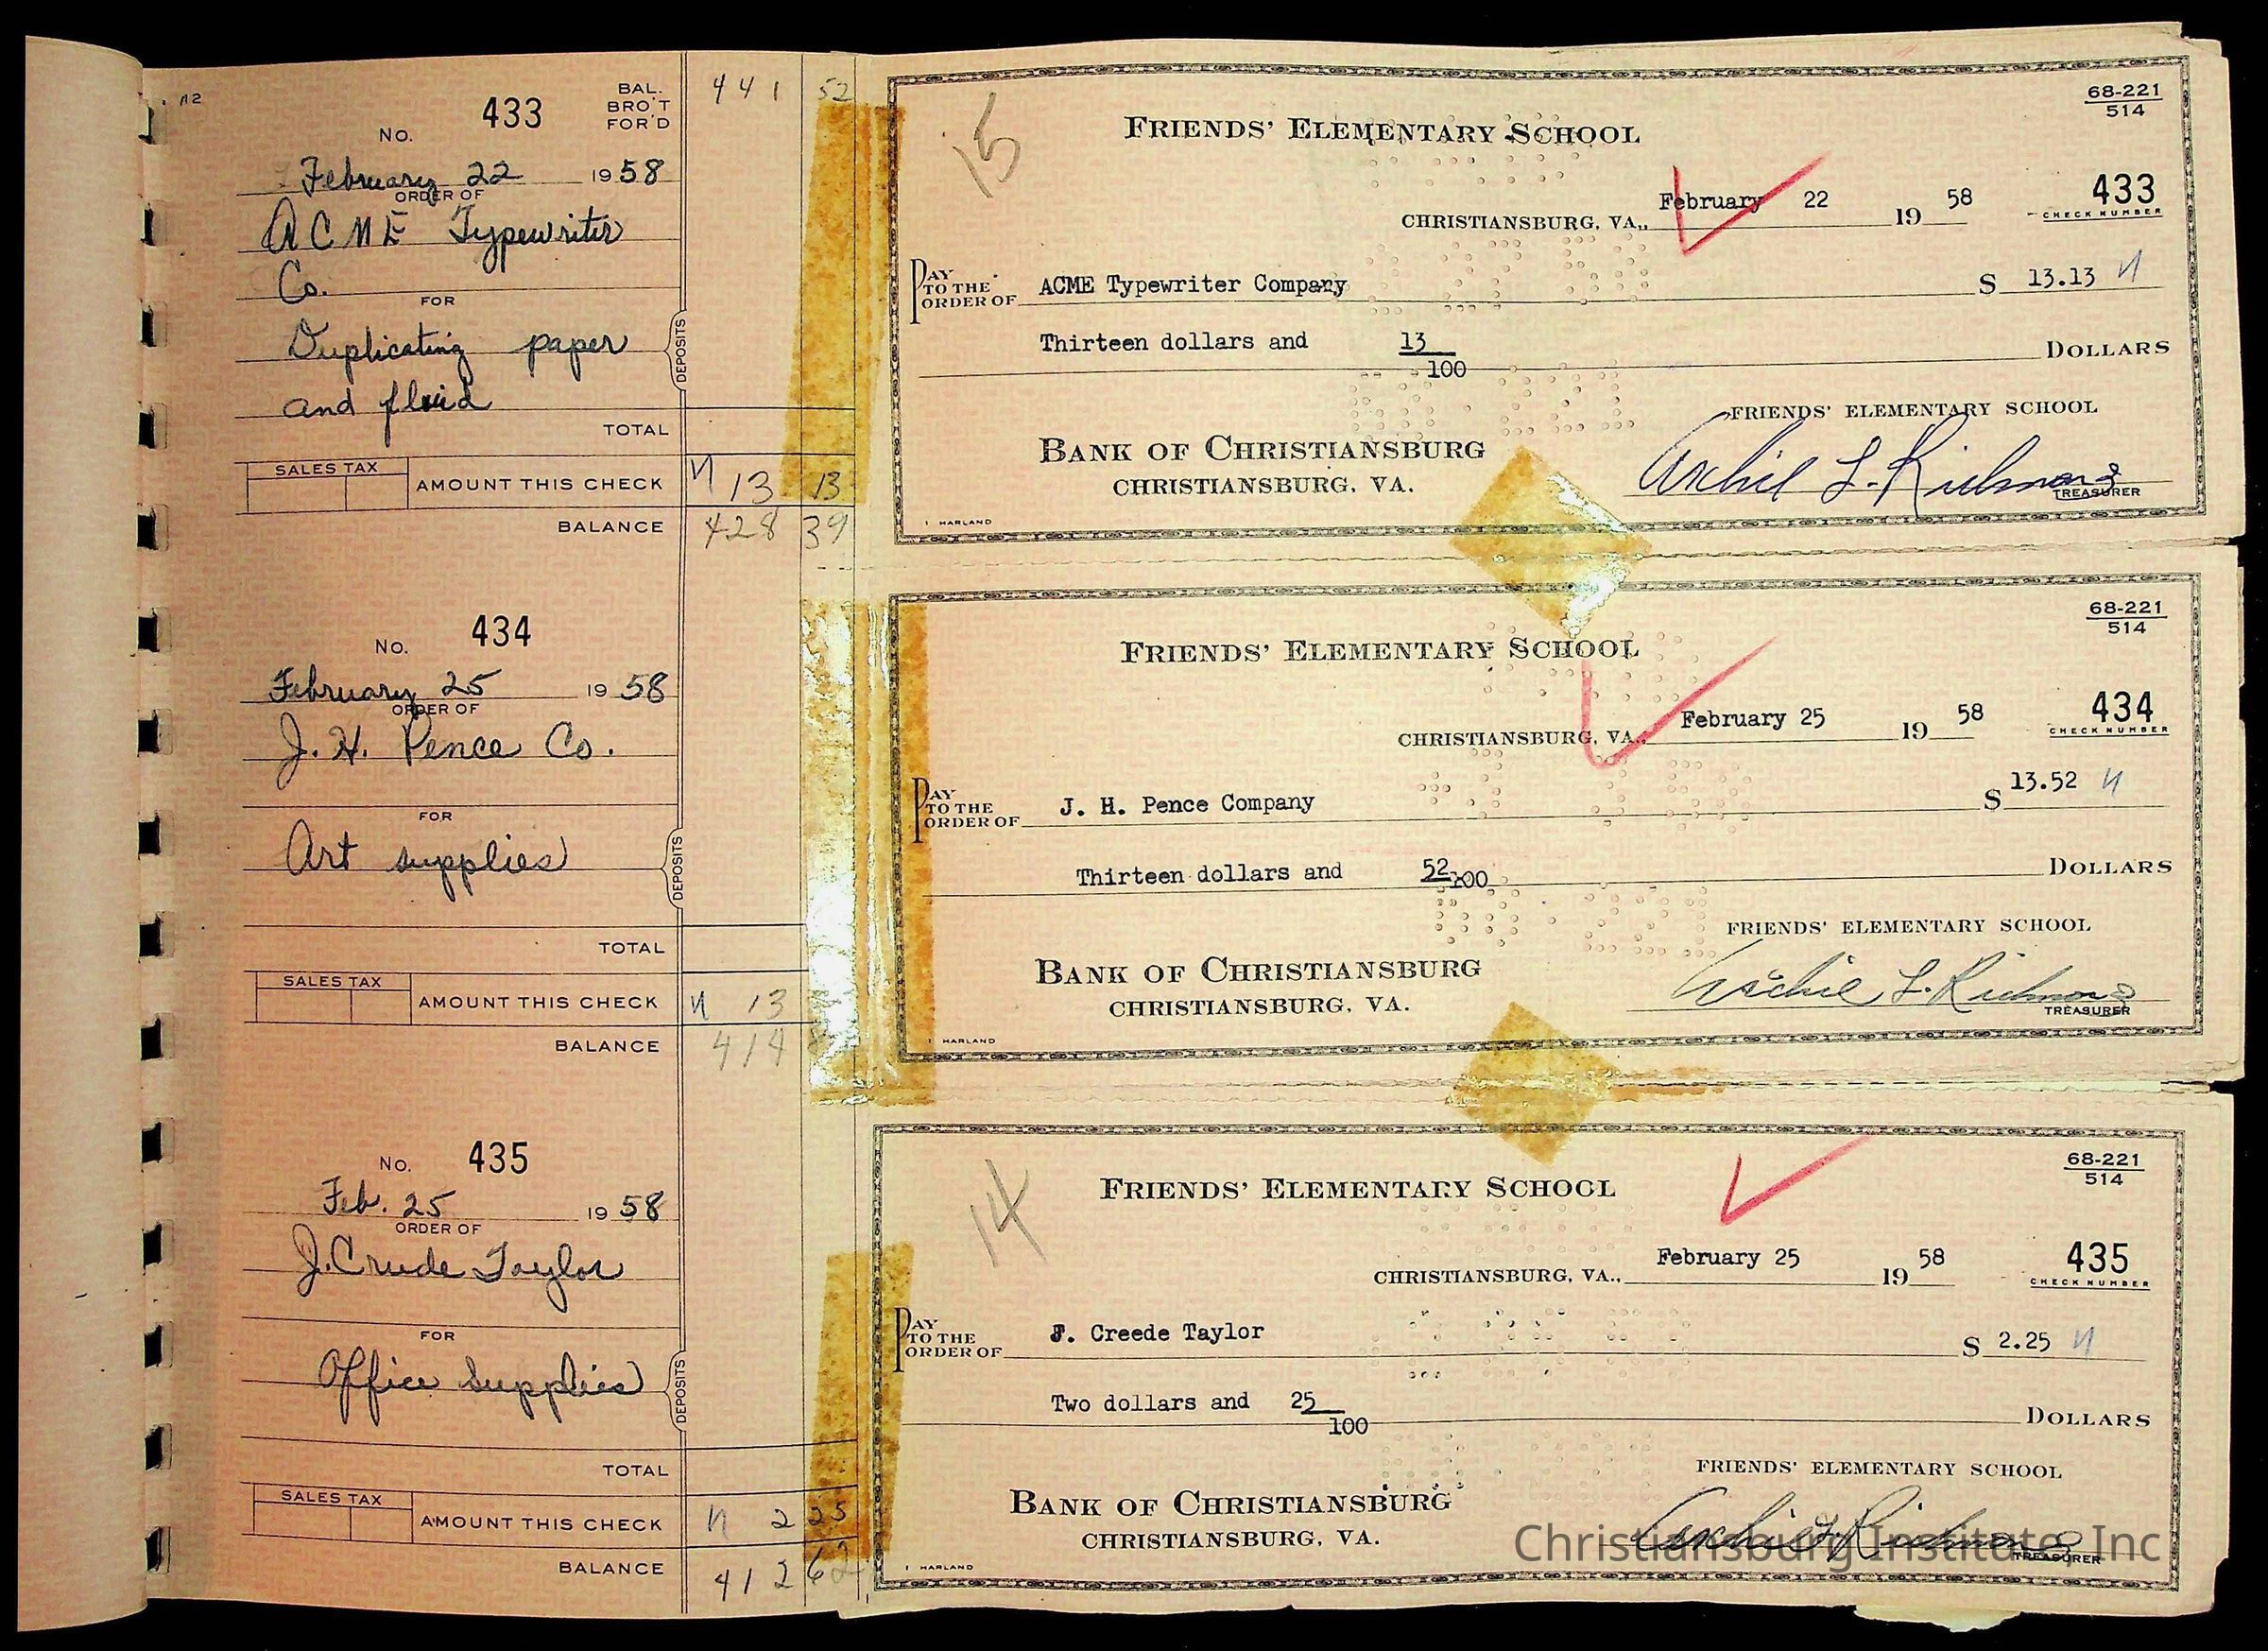 No. 433
BAL.
BRO'T
FOR'D
441 52
February 22 1958
ORDER OF
ACME Typewriter
Co.
FOR
Duplicating paper
and fluid
DEPOSITS
TOTAL
SALES TAX
AMOUNT THIS CHECK 13 13
BALANCE 428 39
15
FRIENDS' ELEMENTARY SCHOOL
68-221
514
CHRISTIANSBURG, VA., February 22 19 58
433
CHECK NUMBER
PAY
TO THE
ORDER OF ACME Typewriter Company $ 13.13
Thirteen dollars and 13/100 DOLLARS
FRIENDS' ELEMENTARY SCHOOL
BANK OF CHRISTIANSBURG
CHRISTIANSBURG, VA.
Archie L. Richmond
TREASURER
HARLAND
No. 434
February 25 1958
ORDER OF
J. H. Pence Co.
FOR
Art supplies
DEPOSITS
TOTAL
SALES TAX
AMOUNT THIS CHECK 13
BALANCE 414
FRIENDS' ELEMENTARY SCHOOL
68-221
514
CHRISTIANSBURG, VA., February 25 19 58
434
CHECK NUMBER
PAY
TO THE
ORDER OF J. H. Pence Company $ 13.52
Thirteen dollars and 52/100 DOLLARS
FRIENDS' ELEMENTARY SCHOOL
BANK OF CHRISTIANSBURG
CHRISTIANSBURG, VA.
Archie L. Richmond
TREASURER
HARLAND
No. 435
Feb. 25 1958
ORDER OF
J. Crude Taylor
FOR
Office supplies
DEPOSITS
TOTAL
SALES TAX
AMOUNT THIS CHECK 2 25
BALANCE 412 62
14
FRIENDS' ELEMENTARY SCHOOL
68-221
514
CHRISTIANSBURG, VA., February 25 19 58
435
CHECK NUMBER
PAY
TO THE
ORDER OF J. Creede Taylor $ 2.25
Two dollars and 25/100 DOLLARS
FRIENDS' ELEMENTARY SCHOOL
BANK OF CHRISTIANSBURG
CHRISTIANSBURG, VA.
Archie L. Richmond
TREASURER
HARLAND
Christiansburg Institute, Inc